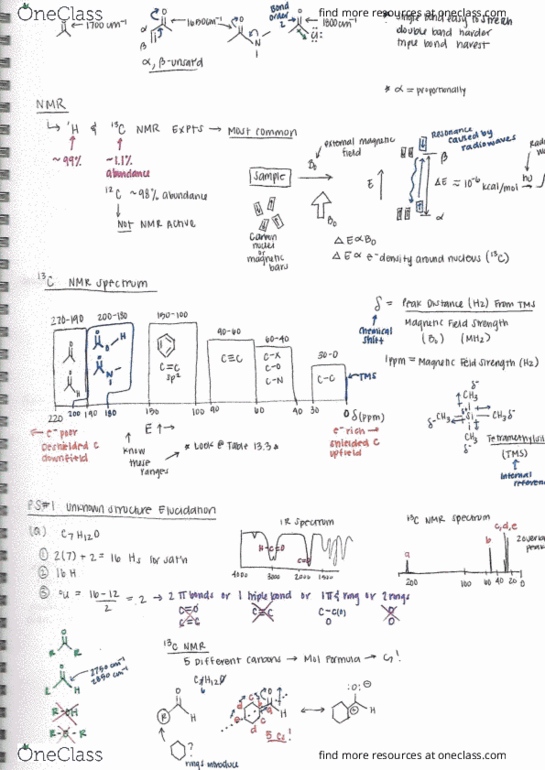 OneClass
find more resources at oneclass.com
1700 cm⁻¹
Bond order
1800 cm⁻¹
double bond harder
α, β-unsatd
* α = proportionally
NMR
↳ ¹H & ¹³C NMR Expts → Most common
~99%
~1.1% abundance
¹²C ~98% abundance
Not NMR Active
Sample
external magnetic field
B₀
Carbon nuclei or magnetic bars
Resonance caused by radiowaves
E
β
ΔE ≈ 10⁻⁶ kcal/mol
α
ΔE α B₀
ΔE α e⁻ density around nucleus (¹³C)
¹³C NMR spectrum
220-190
200-180
150-100
90-60
60-40
30-0
C=C
sp²
C≡C
C-X
C-O
C-N
C-C
TMS
220 200 190 180 150 100 90 60 40 30 0 δ(ppm)
← e⁻ poor
Deshielded C
downfield
E ↑→
know these ranges
* Look @ Table 13.3
e⁻ rich →
shielded C
upfield
δ = Peak Distance (Hz) From TMS
Magnetic Field Strength
(B₀) (MHz)
chemical shift
1ppm = Magnetic Field Strength (Hz)
CH₃
δ⁻CH₃ Si CH₃δ⁻
CH₃
δ⁻
(TMS)
PS#1 Unknown Structure Elucidation
(a) C₇H₁₂O
① 2(7) + 2 = 16 Hs for sat'n
② 16 H
③ °u = 16-12 / 2 = 2 → 2 π bonds or 1 triple bond or 1 π & ring or 2 rings
C=O
C=C
C≡C
IR Spectrum
4000 3000 2000 1500
¹³C NMR Spectrum
a
b
c,d,e
200 100 60 40 20 0
¹³C NMR
5 Different carbons → Mol Formula → C₇!
2750 cm⁻¹
2850 cm⁻¹
5 Cs!
rings introduce
OneClass
find more resources at oneclass.com